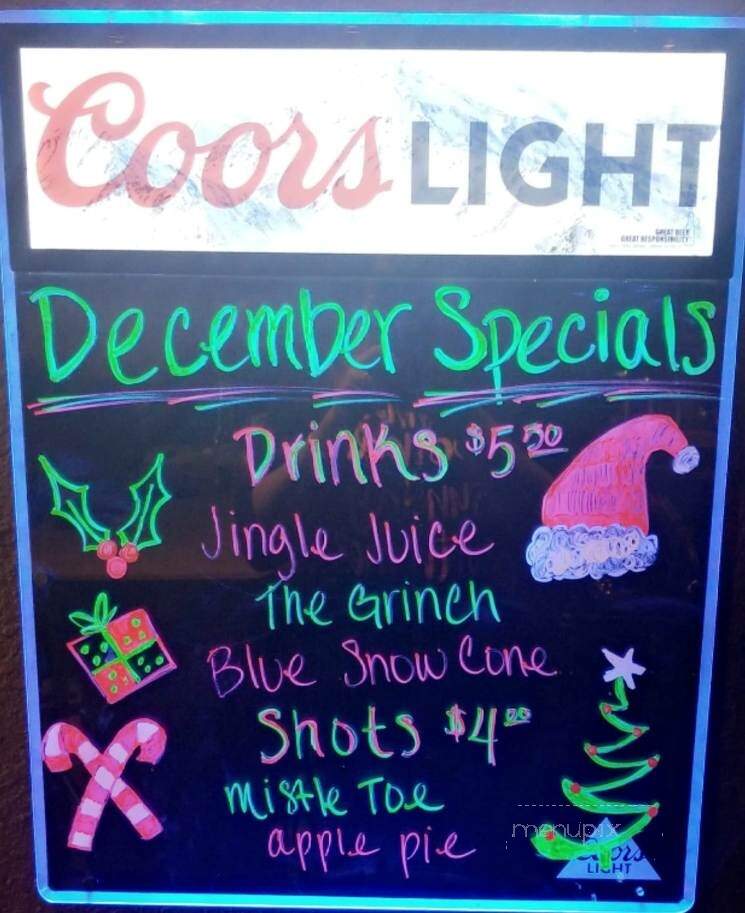 Coors LIGHT
GREAT BEER
GREAT RESPONSIBILITY
December Specials
Drinks $5.50
Jingle Juice
The Grinch
Blue Snow Cone
Shots $4.00
Mistle Toe
apple pie
menupix
Coors
LIGHT